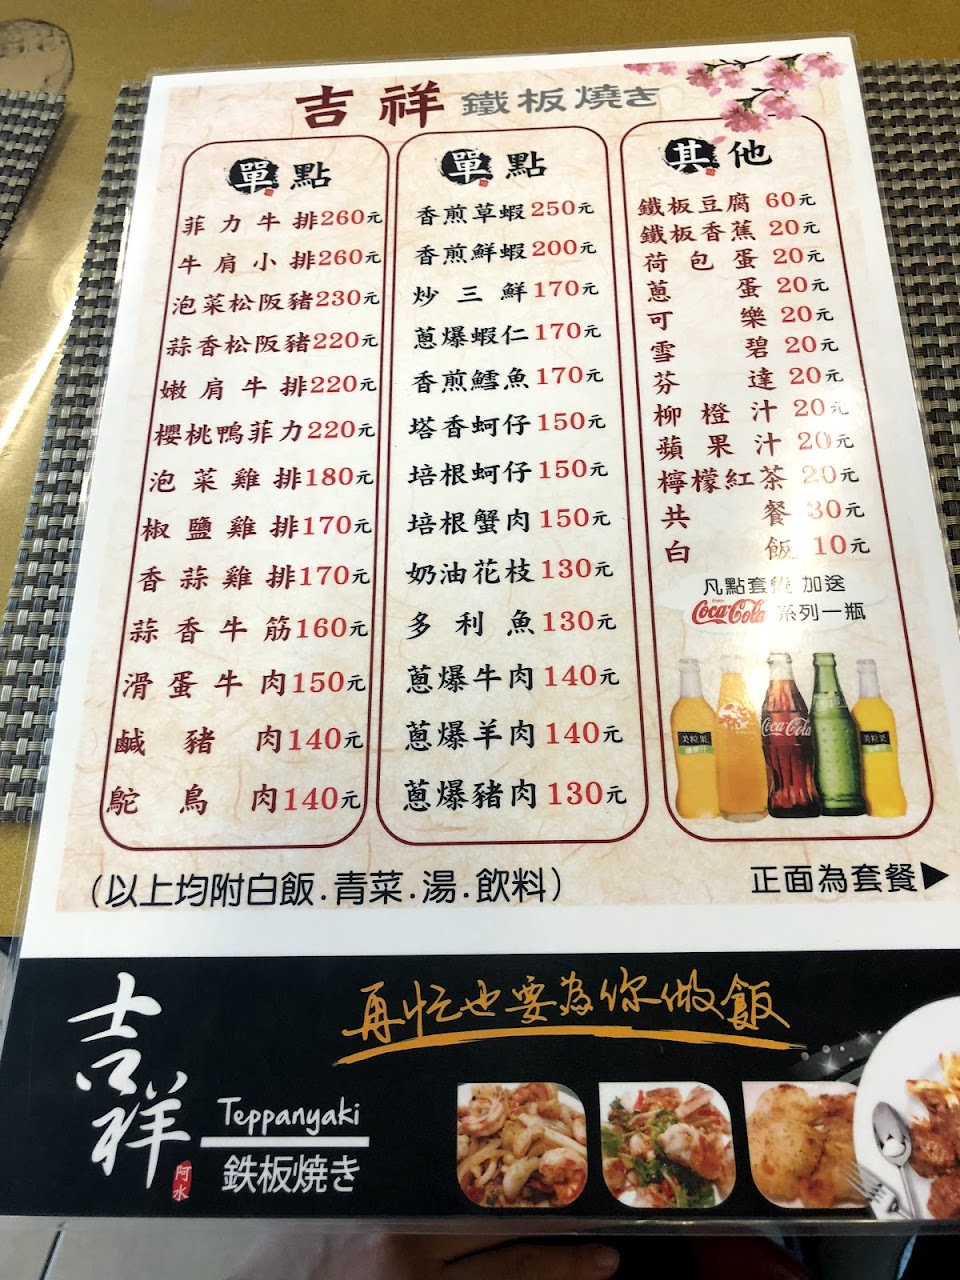 吉祥 鐵板燒き
單點
菲力牛排260元
牛肩小排260元
泡菜松阪豬230元
蒜香松阪豬220元
嫩肩牛排220元
櫻桃鴨菲力220元
泡菜雞排180元
椒鹽雞排170元
香蒜雞排170元
蒜香牛筋160元
滑蛋牛肉150元
鹹豬肉140元
鴕鳥肉140元
單點
香煎草蝦250元
香煎鮮蝦200元
炒三鮮170元
蔥爆蝦仁170元
香煎鱈魚170元
塔香蚵仔150元
培根蚵仔150元
培根蟹肉150元
奶油花枝130元
多利魚130元
蔥爆牛肉140元
蔥爆羊肉140元
蔥爆豬肉130元
其他
鐵板豆腐60元
鐵板香蕉20元
荷包蛋20元
蔥蛋20元
可樂20元
雪碧20元
芬達20元
柳橙汁20元
蘋果汁20元
檸檬紅茶20元
共餐30元
白飯10元
凡點套餐 加送
Coca-Cola 系列一瓶
美粒果
Coca-Cola
美粒果
(以上均附白飯.青菜.湯.飲料)
正面為套餐▶
再忙也要為你做飯
吉祥
阿水
Teppanyaki
鉄板焼き